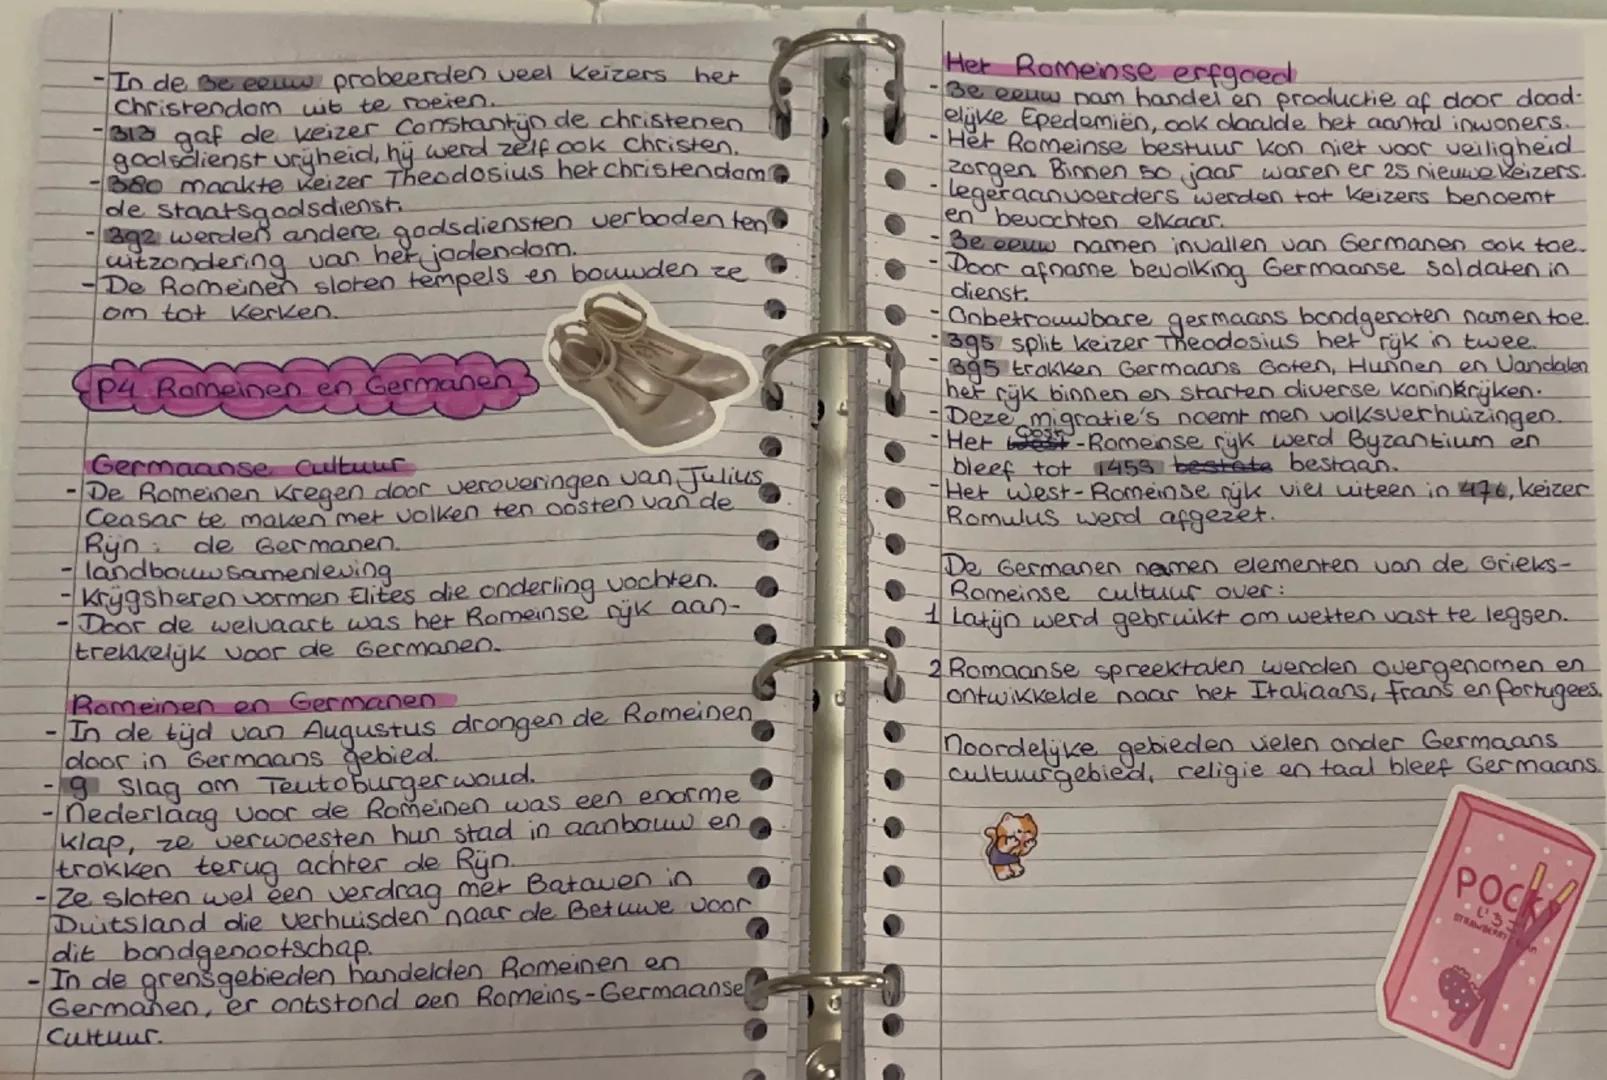 - In de 3e eeuw probeerden veel keizers het
Christendom uit te roeien.
- 313 gaf de keizer Constantijn de christenen
godsdienst vrijheid, hij werd zelf ook Christen.
- 380 maakte keizer Theodosius het christendom
de staatsgodsdienst.
- 392 werden andere godsdiensten verboden ten
uitzondering van het jodendom.
- De Romeinen sloten tempels en bouwden ze
om tot kerken.
P4 Romeinen en Germanen
Germaanse cultuur
- De Romeinen kregen door veroveringen van Julius
Ceasar te maken met volken ten oosten van de
Rijn: de Germanen.
- landbouwsamenleving
- Krijgsheren vormen Elites die onderling vochten.
- Door de welvaart was het Romeinse rijk aan-
trekkelijk voor de Germanen.
Romeinen en Germanen
- In de tijd van Augustus drongen de Romeinen
door in Germaans gebied.
- 9 Slag om Teutoburgerwoud.
- Nederlaag voor de Romeinen was een enorme
klap, ze verwoesten hun stad in aanbouw en
trokken terug achter de Rijn.
- Ze sloten wel een verdrag met Bataven in
Duitsland die verhuisden naar de Betuwe voor
dit bondgenootschap.
- In de grensgebieden handelden Romeinen en
Germanen, er ontstond een Romeins-Germaanse
Cultuur.
Het Romeinse erfgoed
- 3e eeuw nam handel en productie af door dood-
elijke Epedemiën, ook daalde het aantal inwoners.
- Het Romeinse bestuur kon niet voor veiligheid
zorgen. Binnen 50 jaar waren er 25 nieuwe keizers.
- legeraanvoerders werden tot keizers benoemt
en bevochten elkaar.
- 3e eeuw namen invallen van Germanen ook toe.
- Door afname bevolking Germaanse soldaten in
dienst.
- Onbetrouwbare germaans bondgenoten namen toe.
- 395 split keizer Theodosius het rijk in twee.
- 395 trokken Germaans Goten, Hunnen en Vandalen
het rijk binnen en starten diverse koninkrijken.
- Deze migratie's noemt men volksverhuizingen.
- Het Oost-Romeinse rijk werd Byzantium en
bleef tot 1453 bestaan.
- Het West-Romeinse rijk viel uiteen in 476, keizer
Romulus werd afgezet.
De Germanen namen elementen van de Grieks-
Romeinse cultuur over:
1 Latijn werd gebruikt om wetten vast te leggen.
2 Romaanse spreektalen werden overgenomen en
ontwikkelde naar het Italiaans, frans en Portugees.
Noordelijke gebieden vielen onder Germaans
cultuurgebied, religie en taal bleef Germaans.
POCKY
いちご
STRAWBERRY